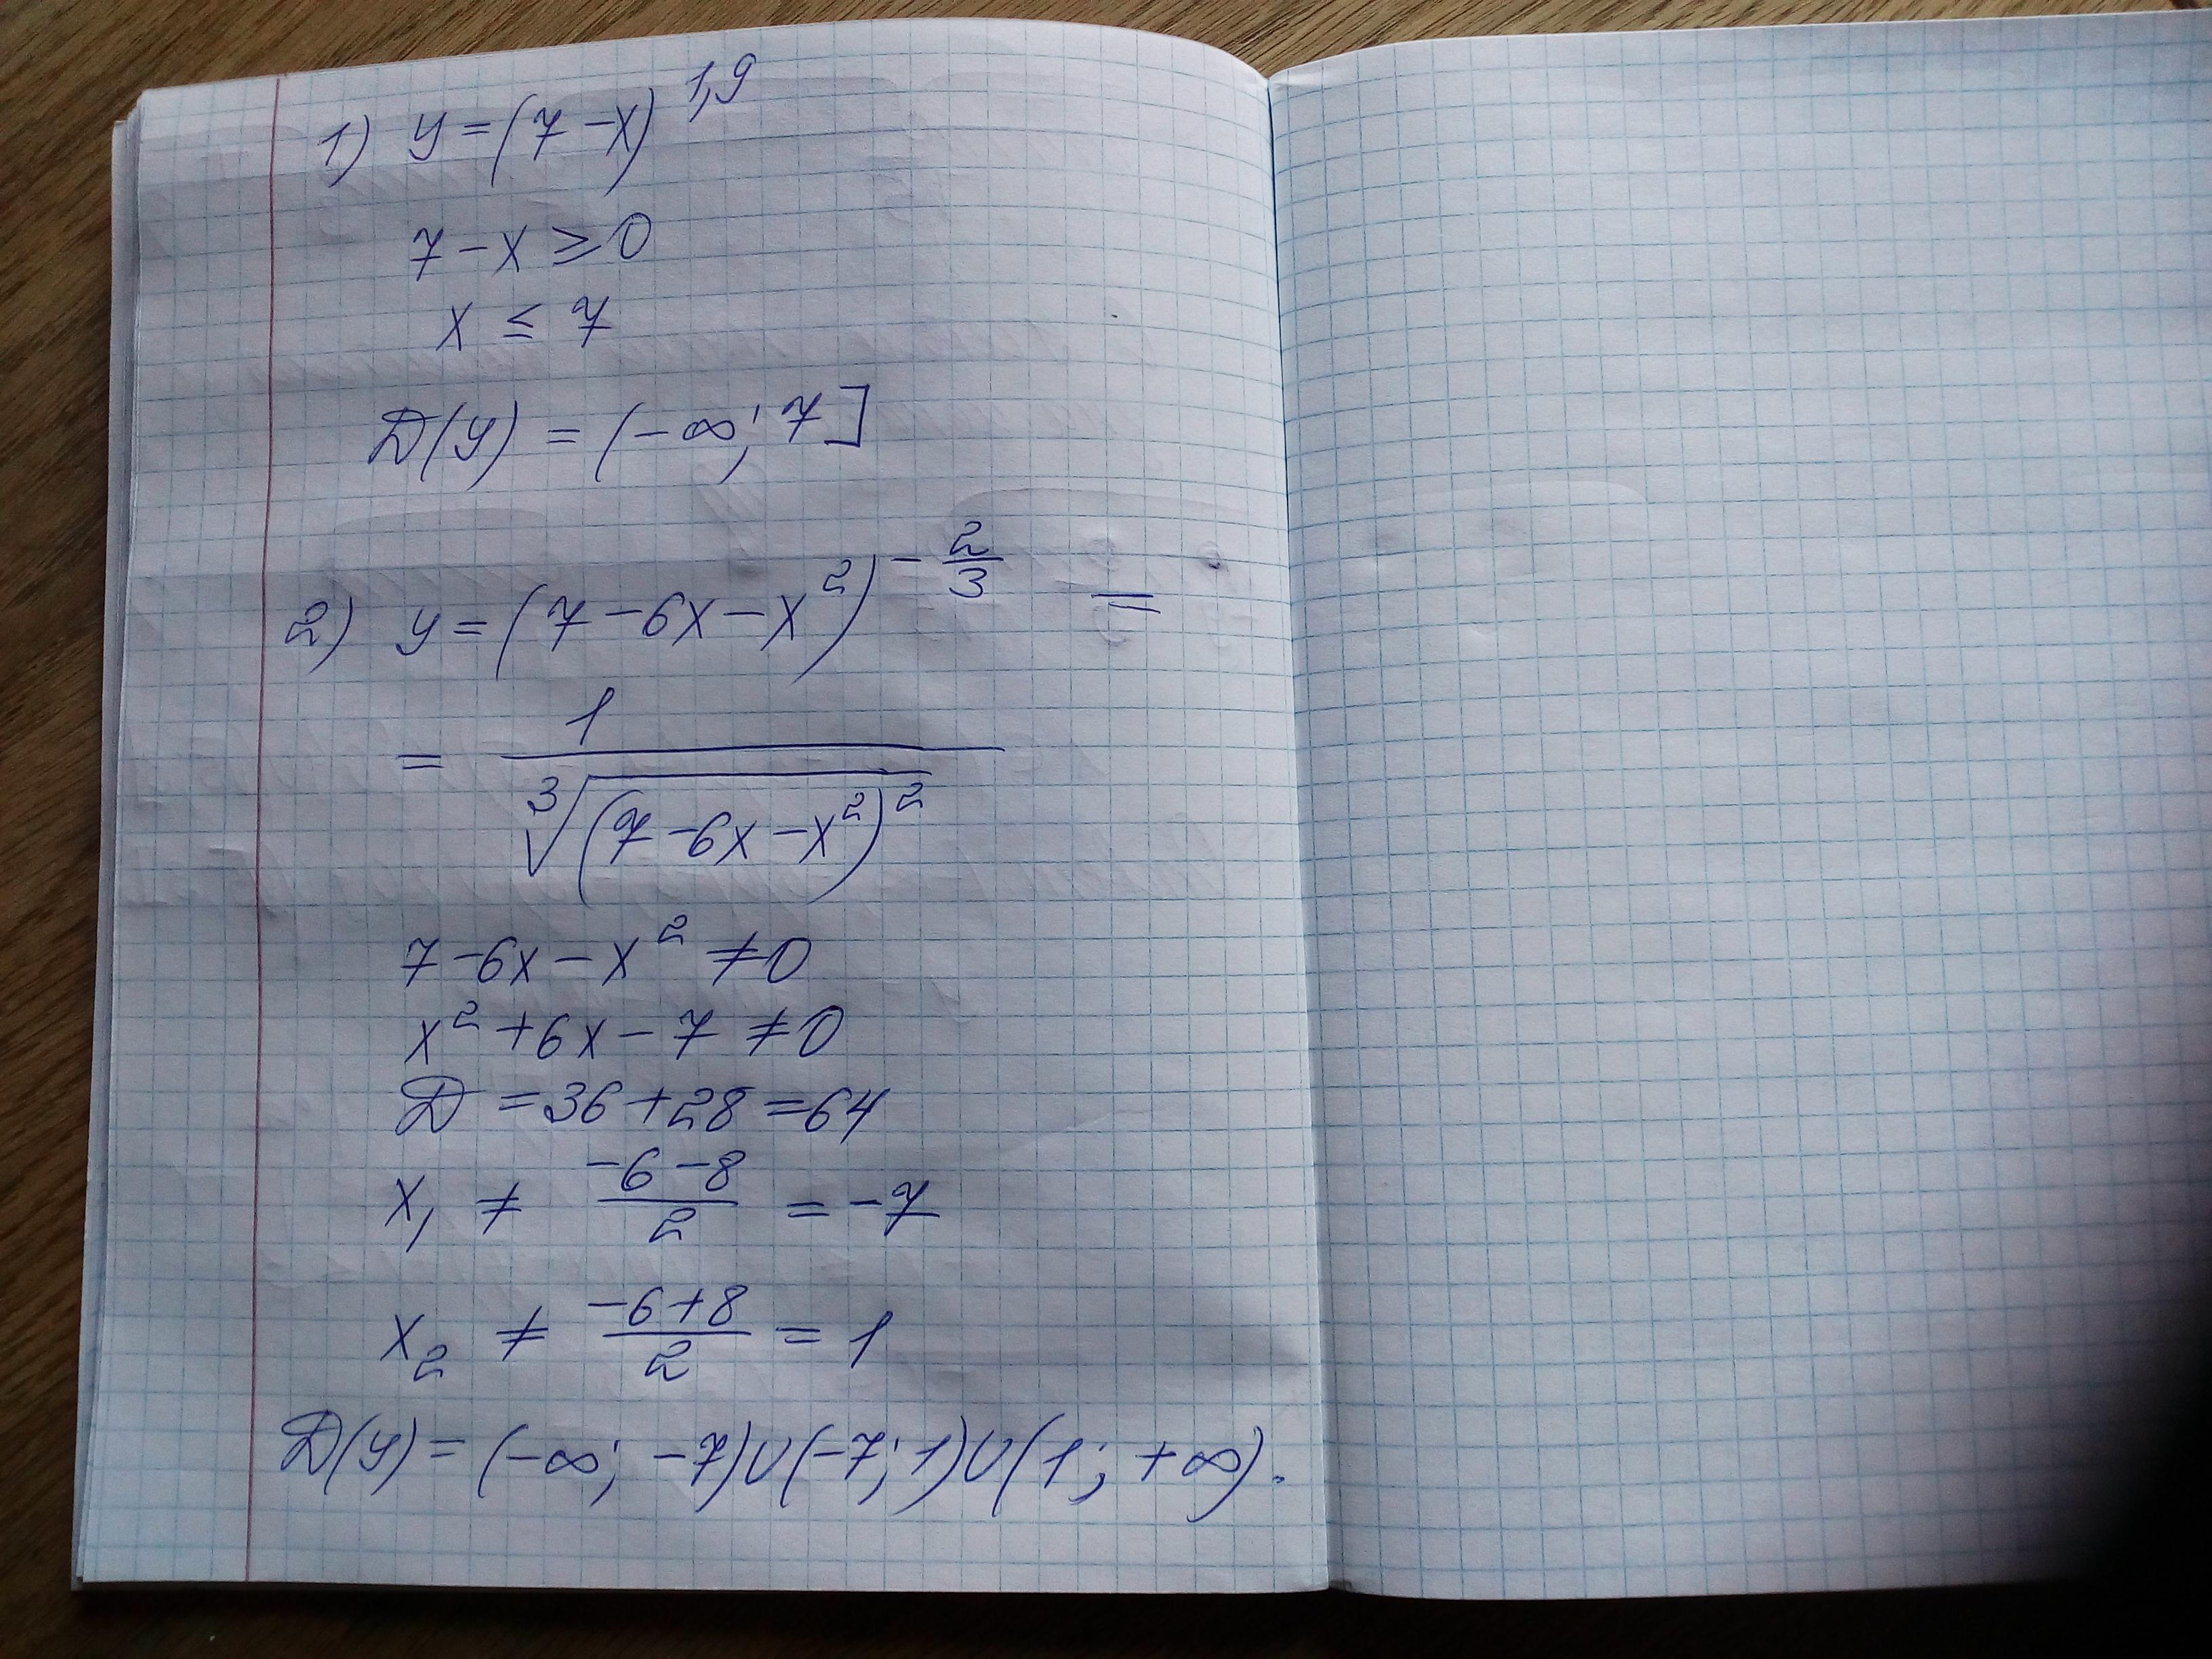 1) y = (7 - x)^{1,9}
7 - x ≥ 0
x ≤ 7
D(y) = (-∞; 7]
2) y = (7 - 6x - x²)^{-2/3} =
= 1/∛((7 - 6x - x²)²)
7 - 6x - x² ≠ 0
x² + 6x - 7 ≠ 0
D = 36 + 28 = 64
x₁ ≠ (-6 - 8)/2 = -7
x₂ ≠ (-6 + 8)/2 = 1
D(y) = (-∞; -7)∪(-7; 1)∪(1; +∞).